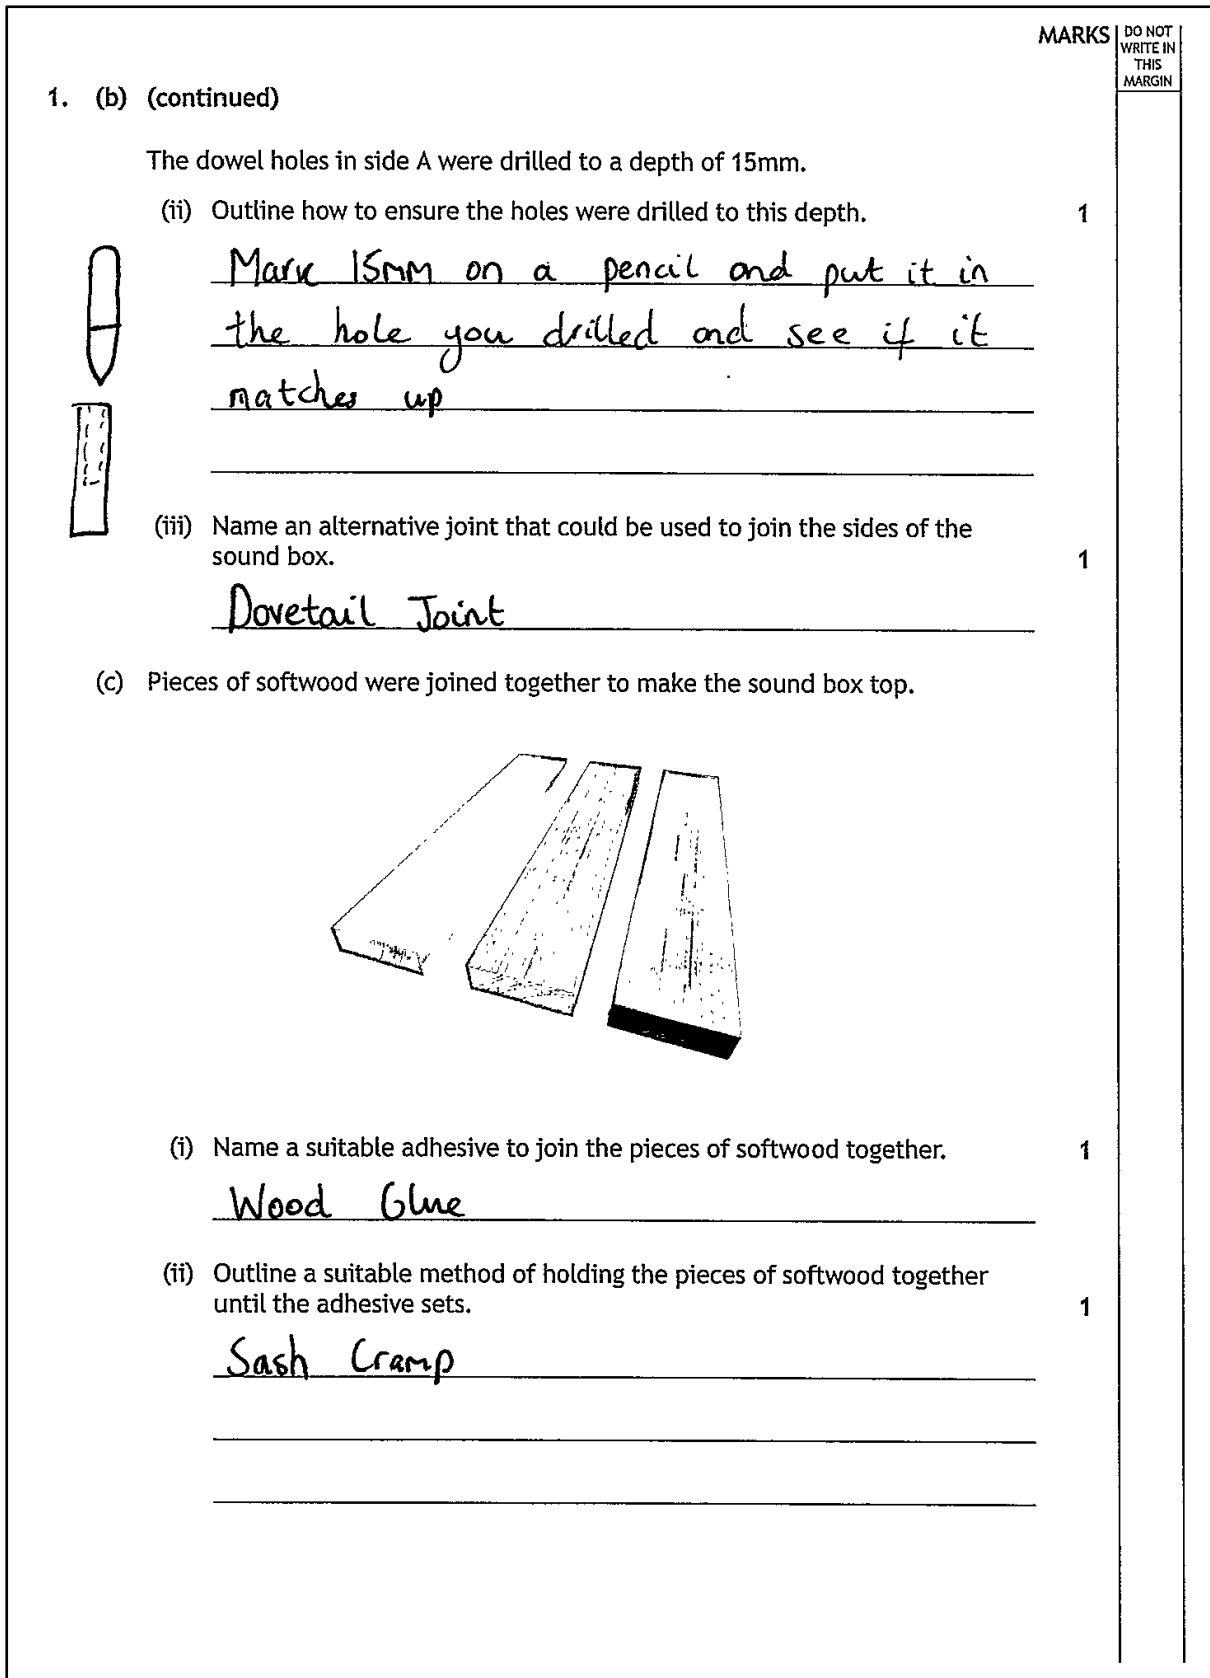 MARKS
DO NOT
WRITE IN
THIS
MARGIN
1. (b) (continued)
The dowel holes in side A were drilled to a depth of 15mm.
(ii) Outline how to ensure the holes were drilled to this depth. 1
Mark 15mm on a pencil and put it in
the hole you drilled and see if it
matches up
(iii) Name an alternative joint that could be used to join the sides of the
sound box. 1
Dovetail Joint
(c) Pieces of softwood were joined together to make the sound box top.
(i) Name a suitable adhesive to join the pieces of softwood together. 1
Wood Glue
(ii) Outline a suitable method of holding the pieces of softwood together
until the adhesive sets. 1
Sash Cramp